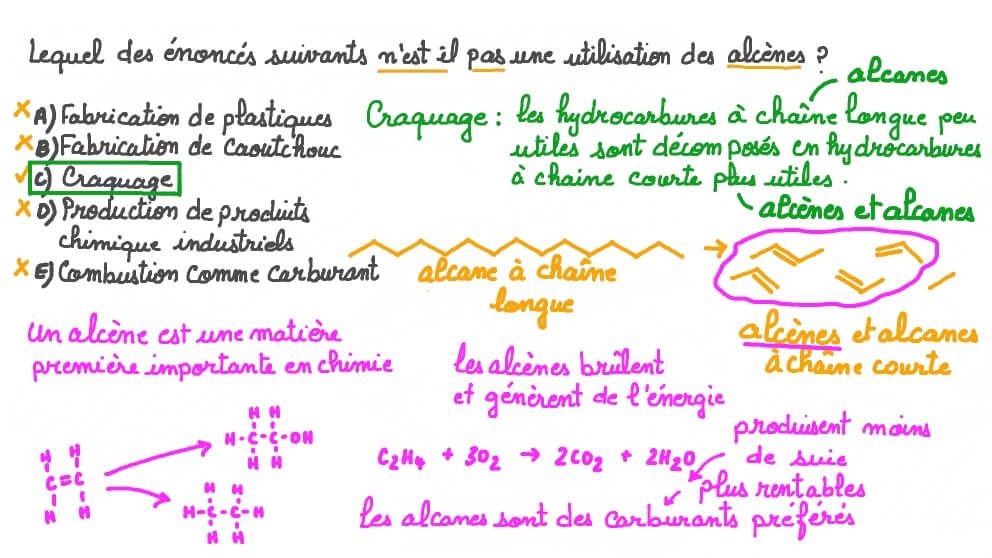 Lequel des énoncés suivants n'est il pas une utilisation des alcènes ?
alcanes
A) Fabrication de plastiques
B) Fabrication de Caoutchouc
C) Craquage
D) Production de produits
chimique industriels
E) Combustion comme carburant
Craquage : les hydrocarbures à chaîne longue peu
utiles sont décomposés en hydrocarbures
à chaine courte plus utiles.
alcènes et alcanes
alcane à chaîne
longue
alcènes et alcanes
à chaîne courte
Un alcène est une matière
première importante en chimie
les alcènes brûlent
et génèrent de l'énergie
H H
H-C-C-OH
H H
H H
C=C
H H
H H
H-C-C-H
H H
C₂H₄ + 3O₂ → 2CO₂ + 2H₂O
produisent moins
de suie
plus rentables
les alcanes sont des carburants préférés